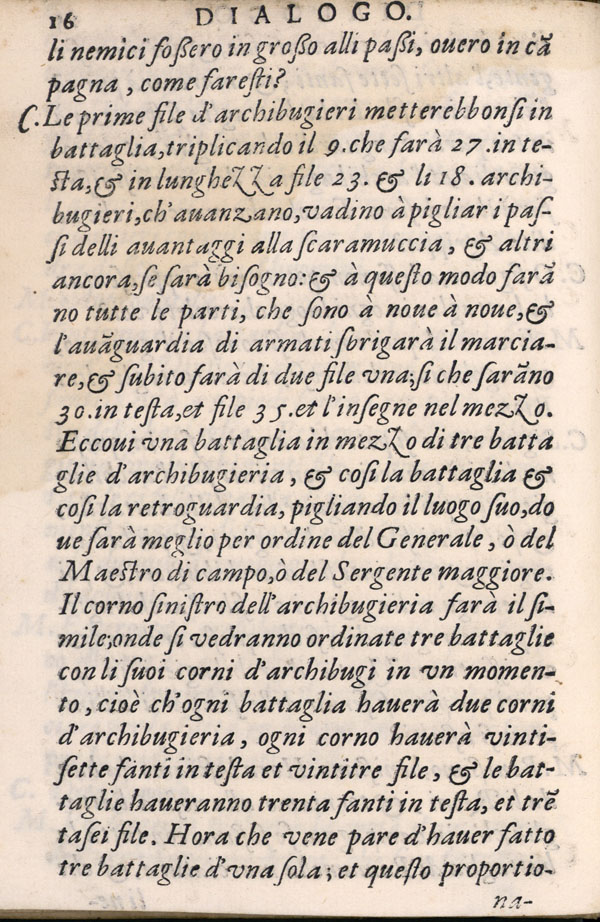 16 DIALOGO.
li nemici foſſero in groſſo alli paſſi, ouero in cā
pagna, come fareſti?
C. Le prime file d'archibugieri metterebbonſi in
battaglia, triplicando il 9. che farà 27. in te-
ſta, & in lunghezza file 23. & li 18. archi-
bugieri, ch'auanzano, vadino à pigliar i paſ-
ſi delli auantaggi alla ſcaramuccia, & altri
ancora, ſe ſarà biſogno: & à queſto modo ſarā
no tutte le parti, che ſono à noue à noue, &
l'auāguardia di armati ſbrigarà il marcia-
re, & ſubito farà di due file vna; ſi che ſarāno
30. in teſta, et file 35. et l'inſegne nel mezzo.
Eccoui vna battaglia in mezzo di tre batta
glie d'archibugieria, & coſi la battaglia &
coſi la retroguardia, pigliando il luogo ſuo, do
ue ſarà meglio per ordine del Generale, ò del
Maeſtro di campo, ò del Sergente maggiore.
Il corno ſiniſtro dell'archibugieria farà il ſi-
mile; onde ſi vedranno ordinate tre battaglie
con li ſuoi corni d'archibugi in vn momen-
to, cioè ch'ogni battaglia hauerà due corni
d'archibugieria, ogni corno hauerà vinti-
ſette fanti in teſta et vintitre file, & le bat-
taglie haueranno trenta fanti in teſta, et trē
taſei file. Hora che vene pare d'hauer fatto
tre battaglie d'vna ſola; et queſto proportio-
na-